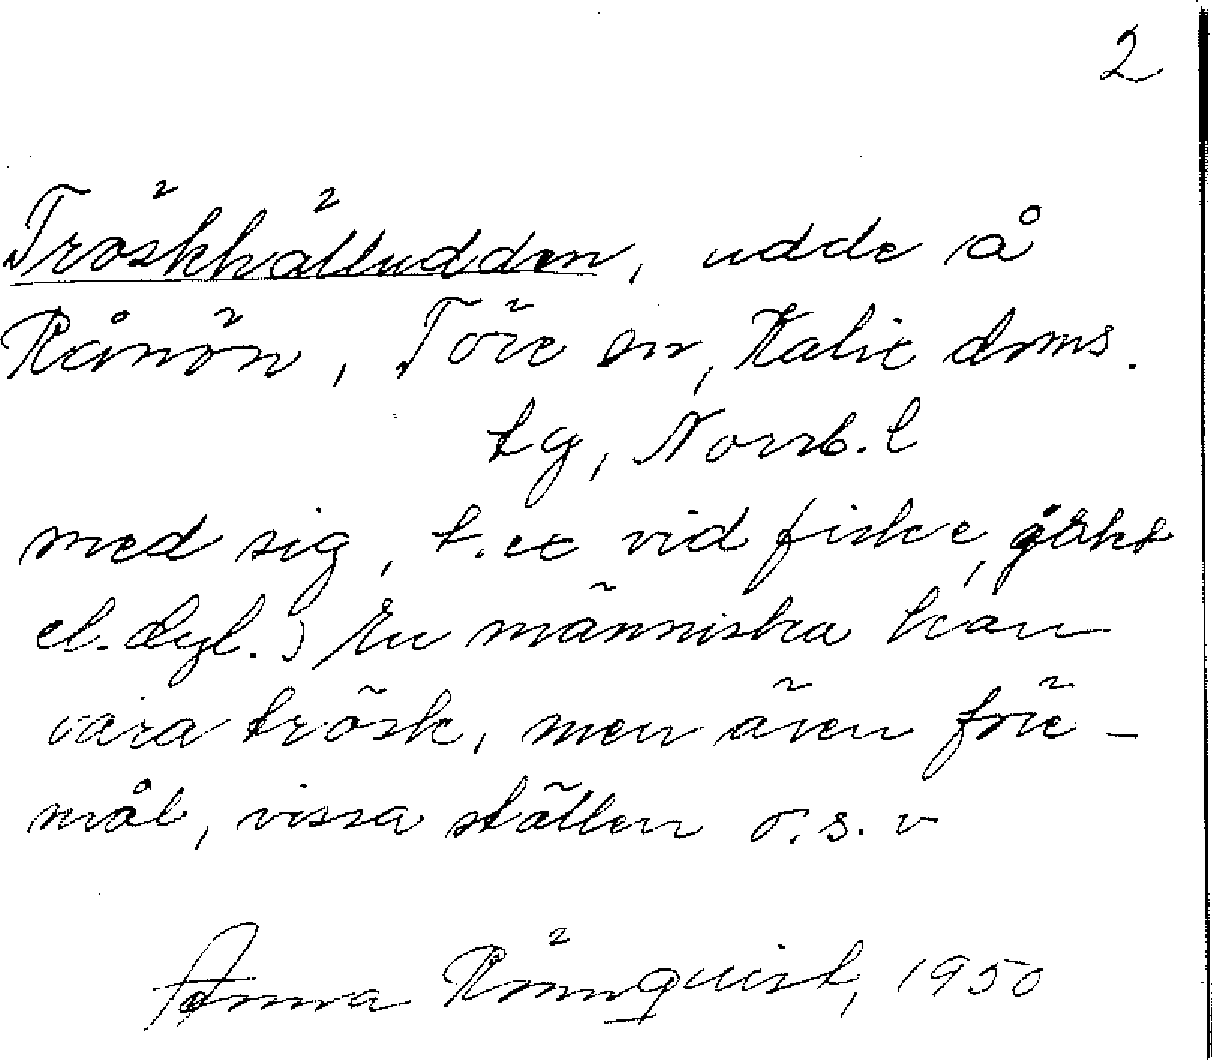 2
Tröskhälludden, udde å
Rånön, Töre sn, Kalix doms.
tg, Norrb. l
med sig, t.ex vid fiske, jakt
el. dyl.) En människa kan
vara trösk, men även före-
mål, vissa ställen o.s.v
Anna Rönnquist, 1950